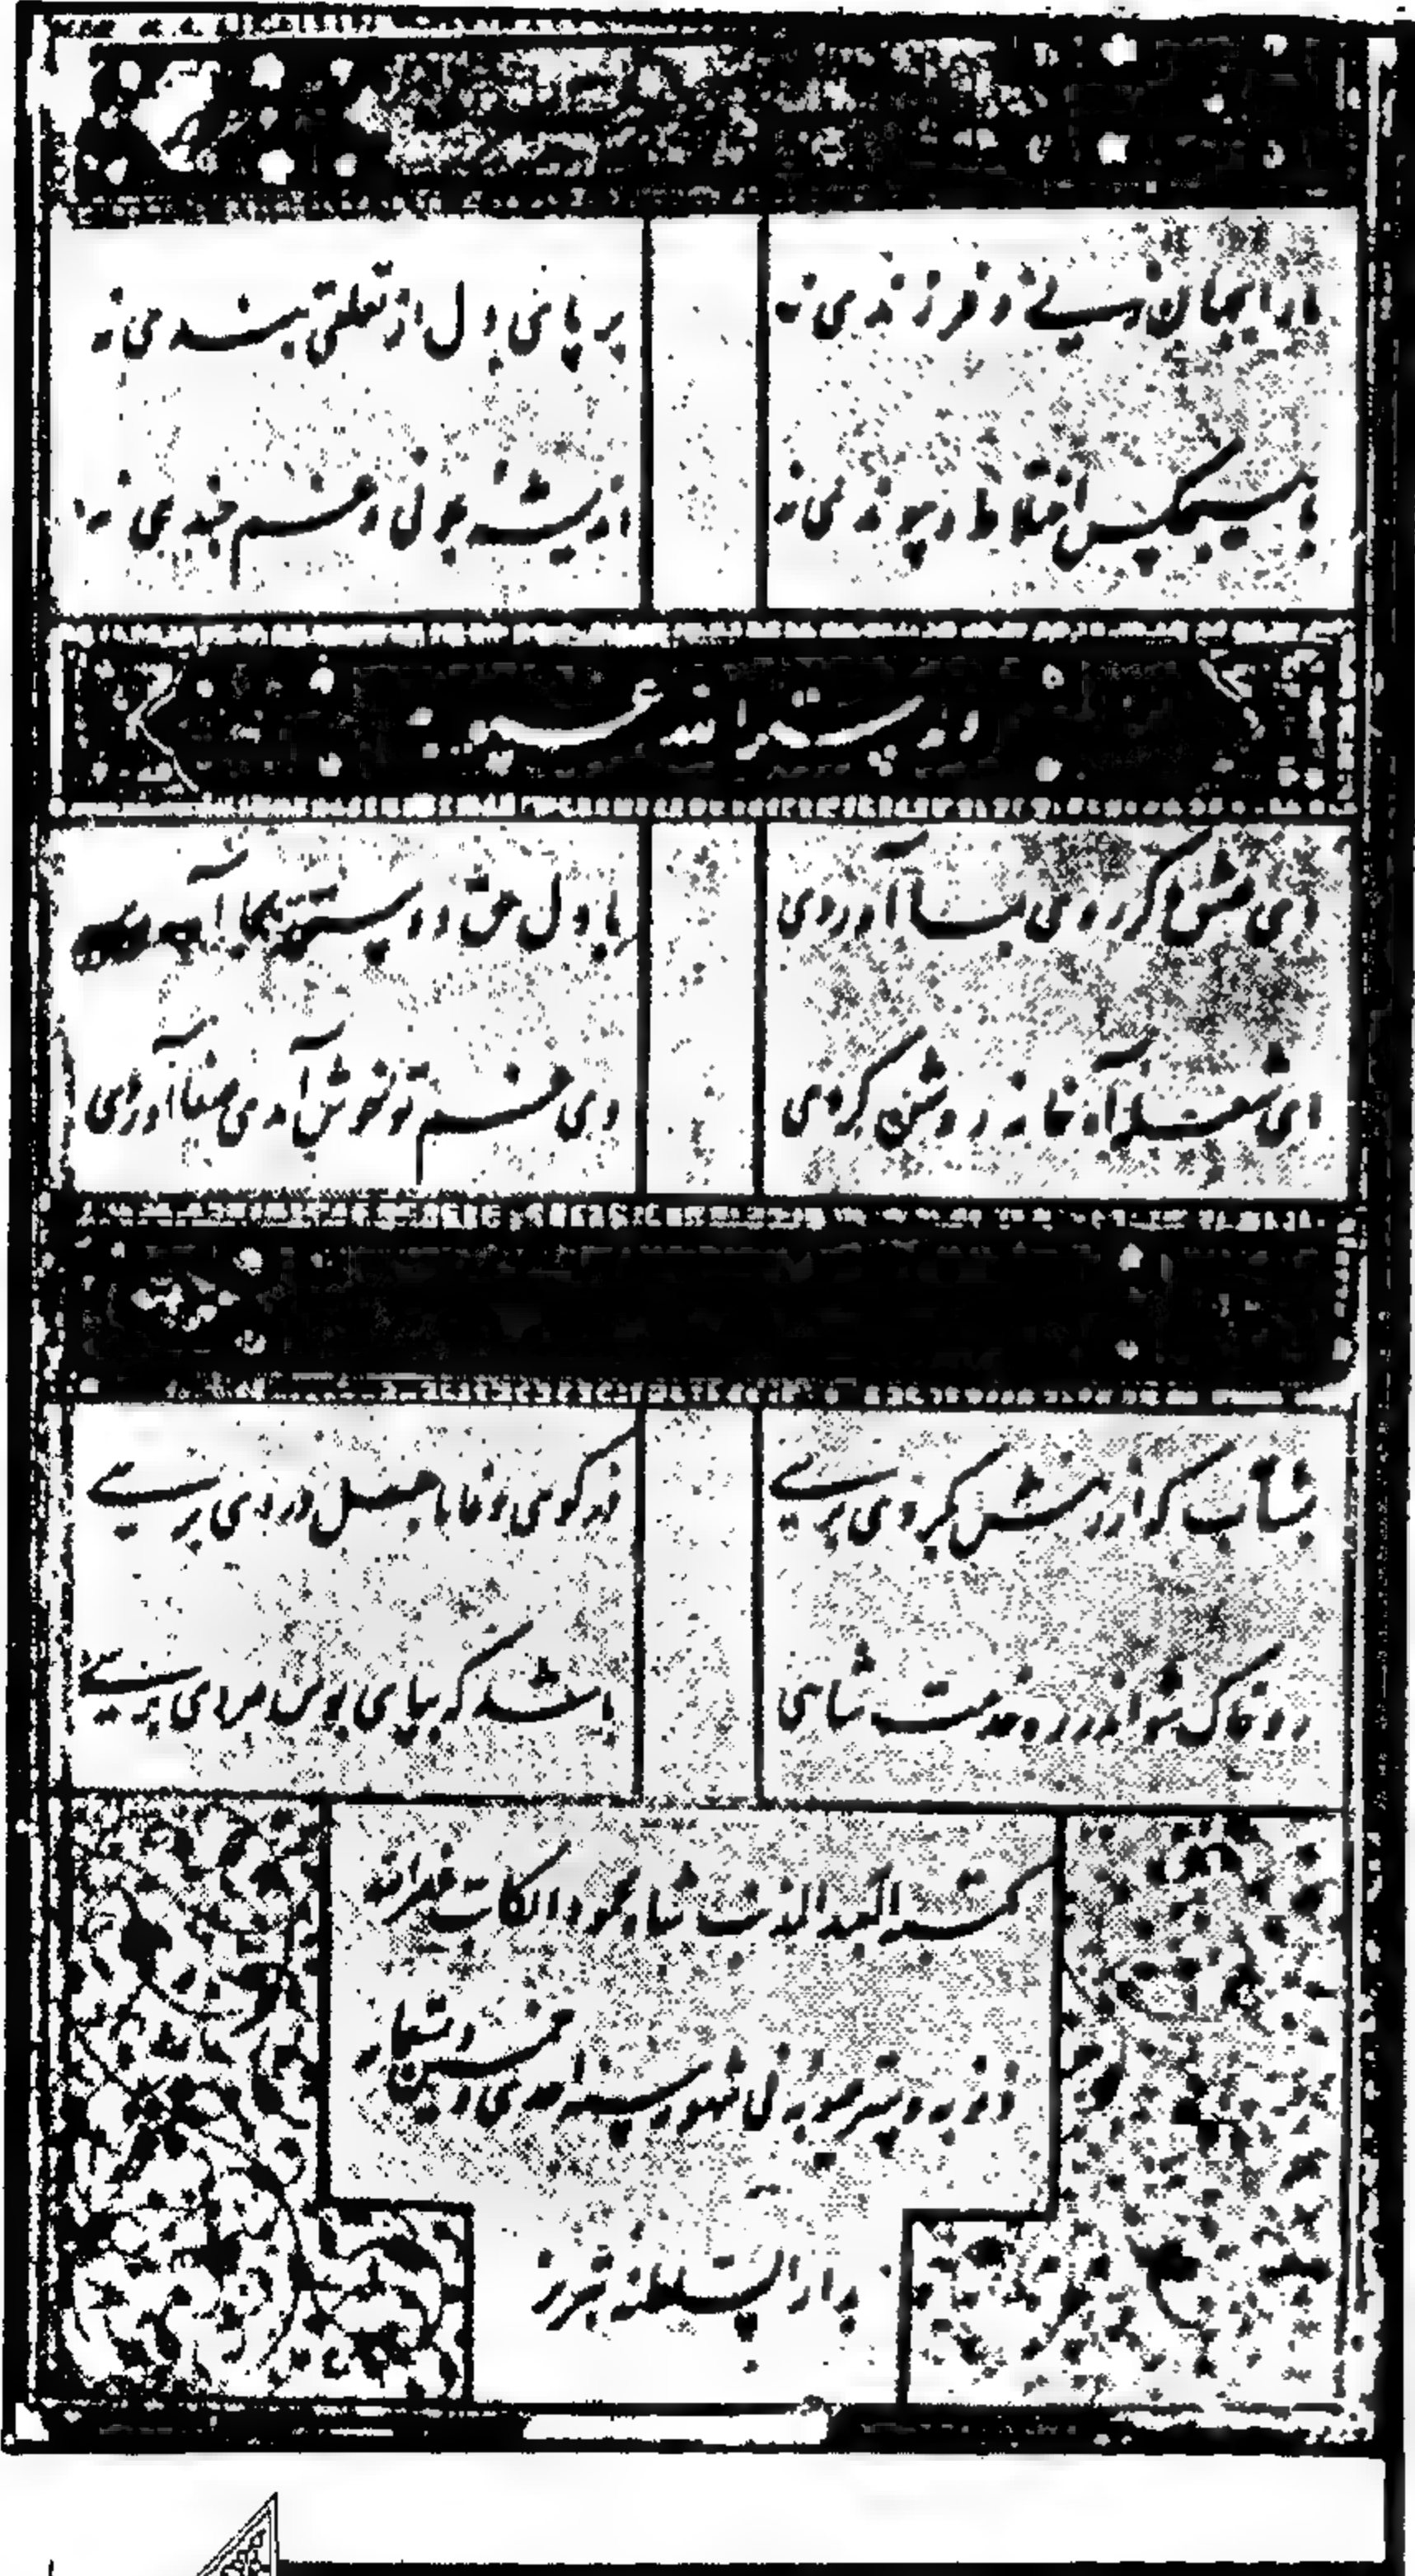 ما را بجهان زنی و فرزندی نه
بر پای دل از تعلقی بندی نه
با هیچکس اختلاط و پیوندی نه
اندیشهٔ چون و غم چندی نه
ای عشق دگر روی بما آوردی
با دل حق دوستی بجا آوردی
ای شعله آه خانه روشن کردی
وی غم تو خوش آمدی صفا آوردی
بشتاب که از عشق بگردی برسی
در کوی وفا باهل دردی برسی
رو خاک شو اندر ره خدمت شاهی
باشد که بپای بوس مردی برسی
کتبه العبد المذنب شاه محمود الکاتب غفر الله
ذنوبه و ستر عیوبه فی شهور سنه احدی و خمسین و تسعمائه
بدار السلطنه تبریز